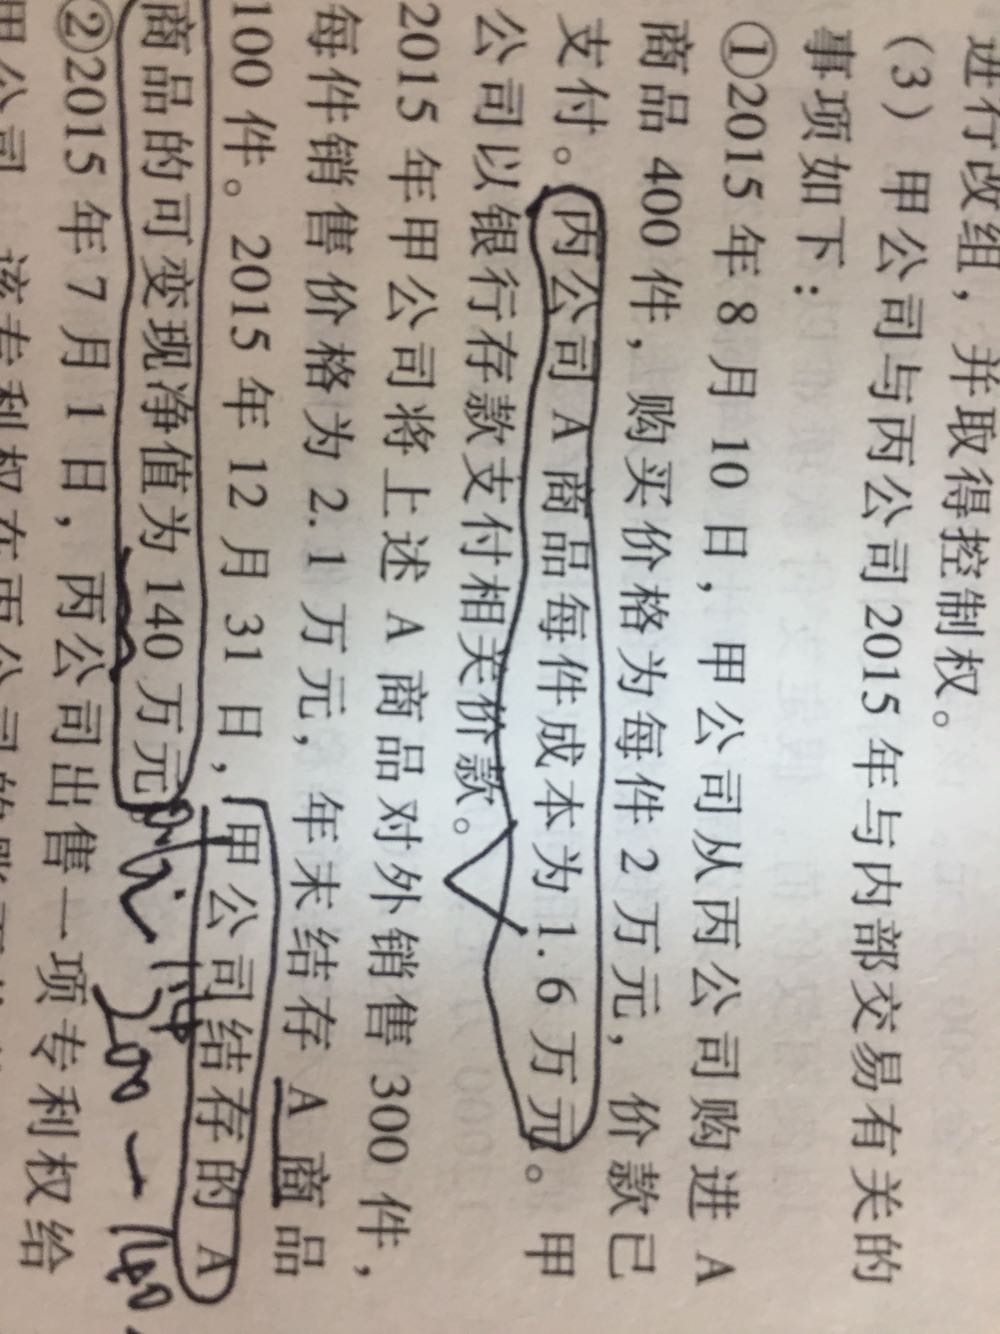 进行改组，并取得控制权。
（3）甲公司与丙公司2015年与内部交易有关的
事项如下：
①2015年8月10日，甲公司从丙公司购进A
商品400件，购买价格为每件2万元，价款已
支付。丙公司A商品每件成本为1.6万元。甲
公司以银行存款支付相关价款。
2015年甲公司将上述A商品对外销售300件，
每件销售价格为2.1万元，年末结存A商品
100件。2015年12月31日，甲公司结存的A
商品的可变现净值为140万元
②2015年7月1日，丙公司出售一项专利权给
200-140